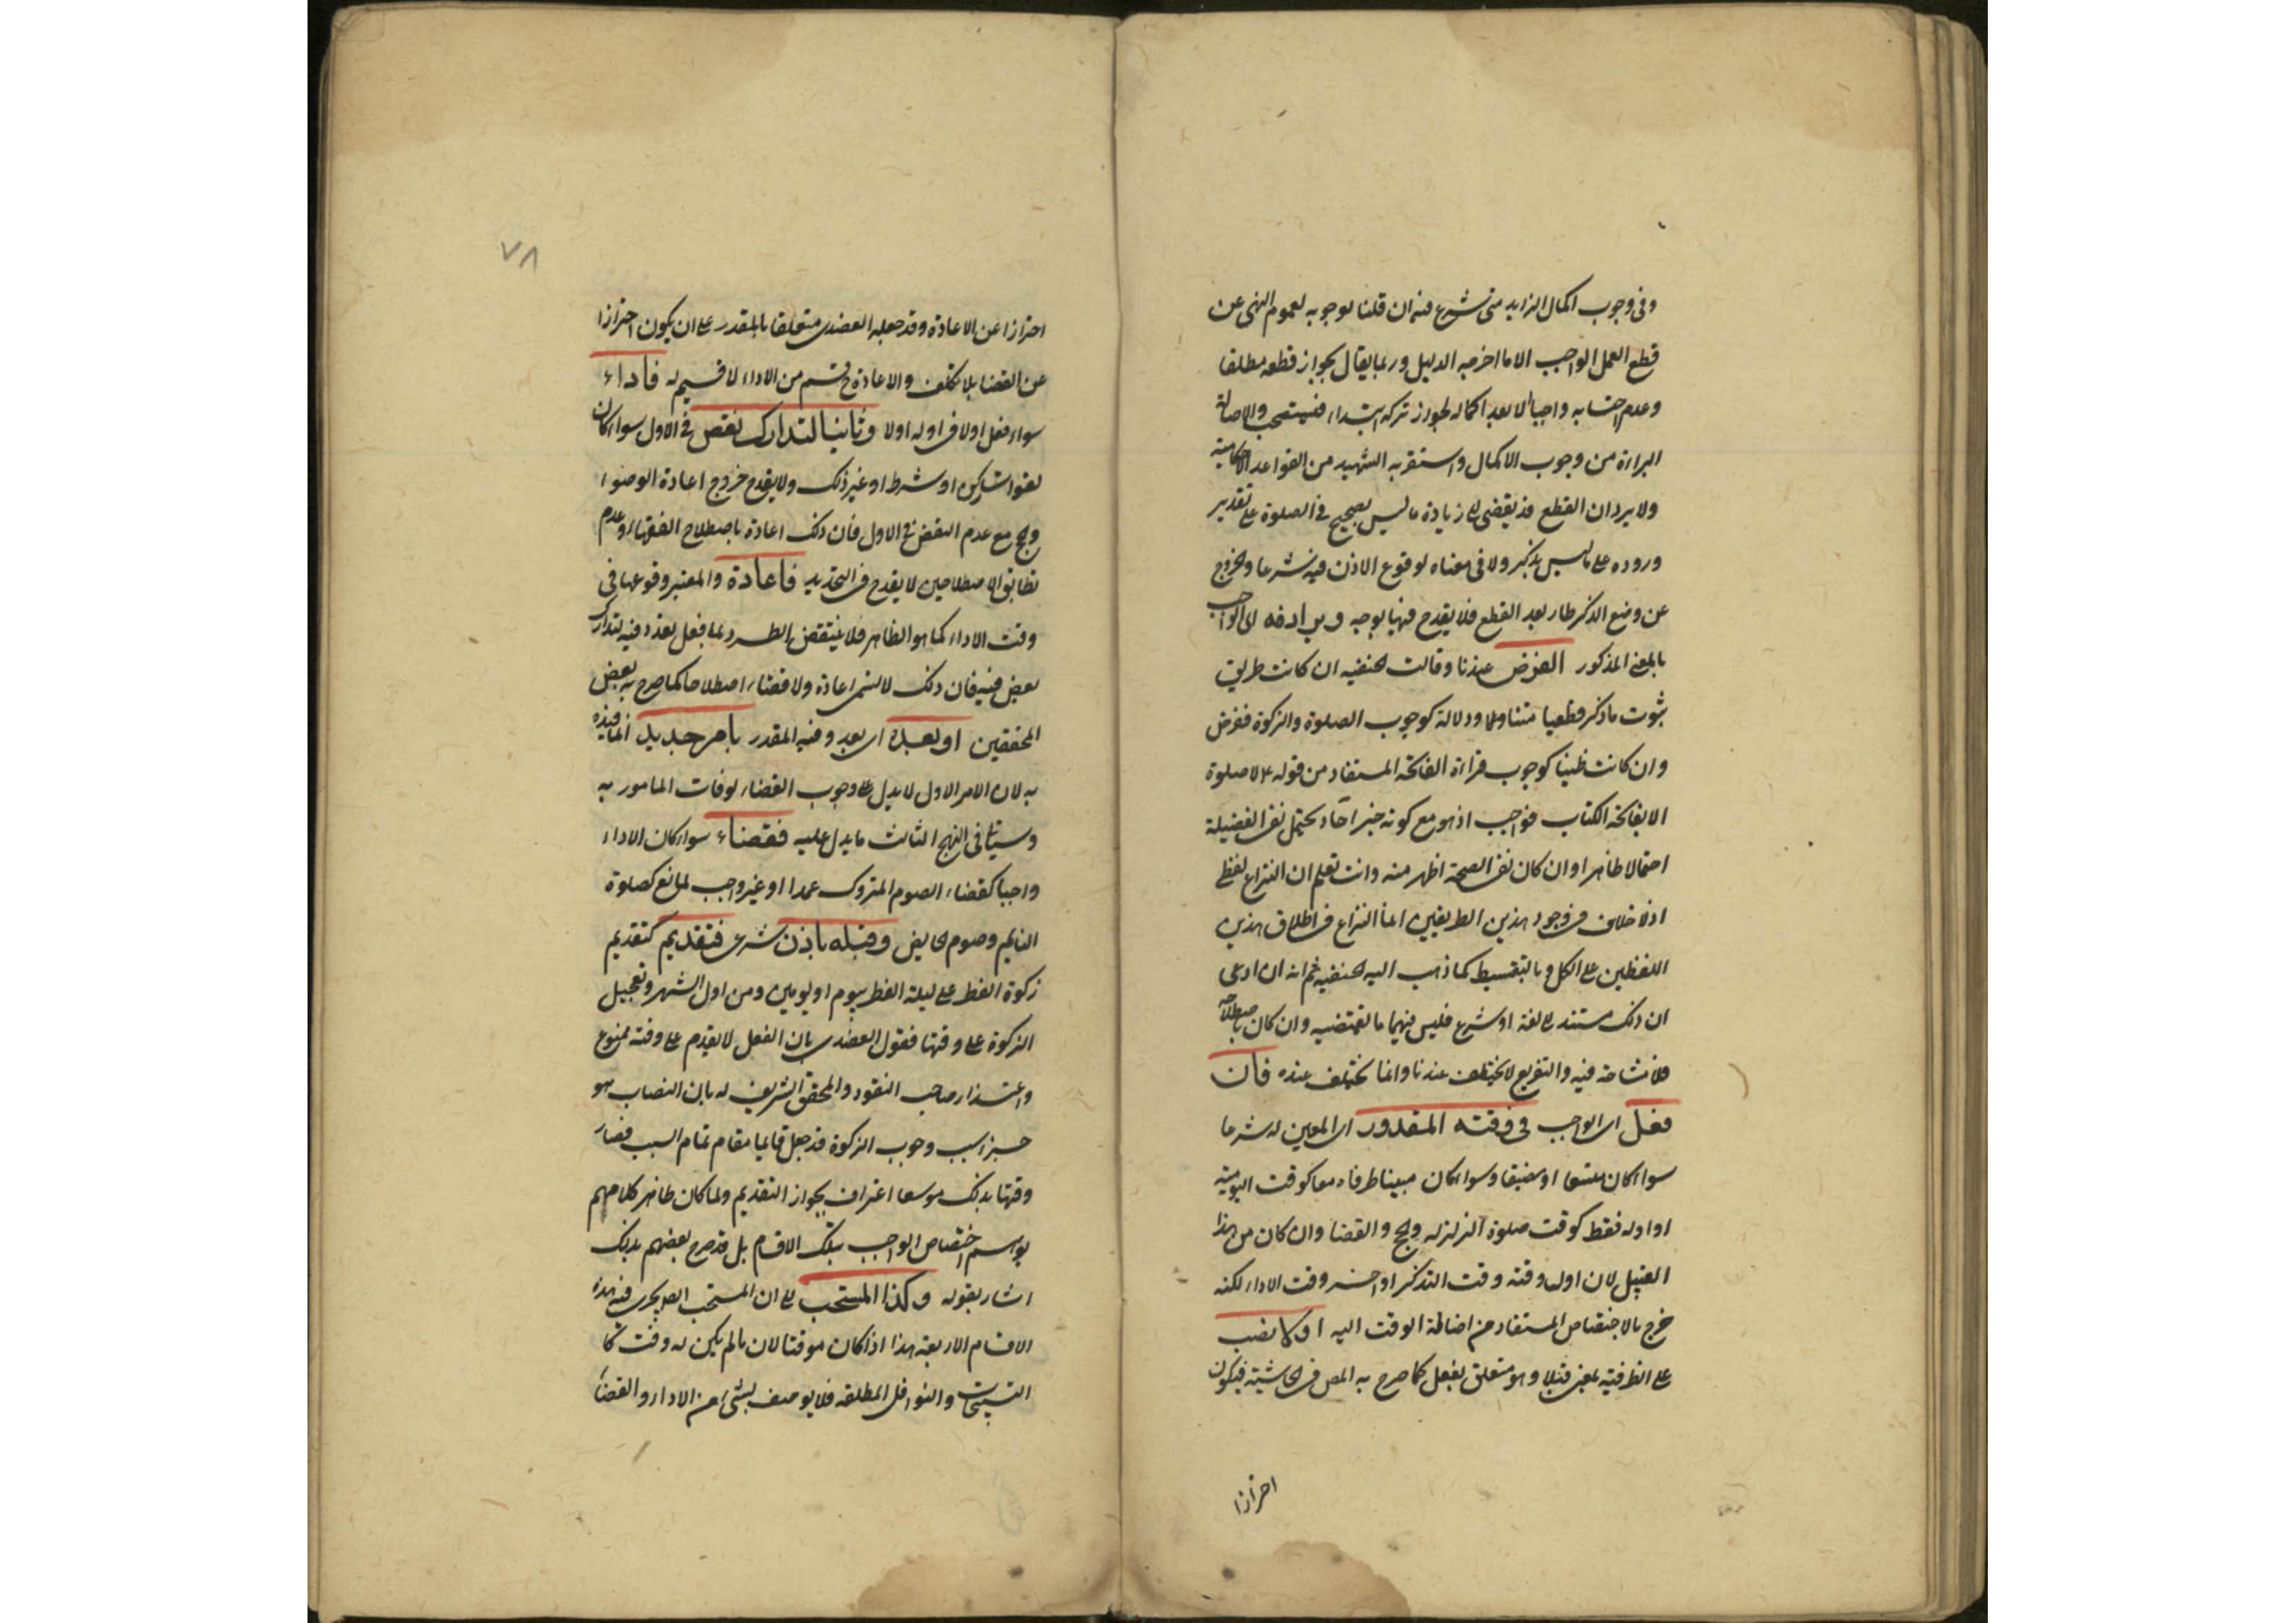 وفي وجوب اكمال الزايد متى شرع فيه ان قلنا بوجوبه لعموم النهى عن
قطع العمل الواجب الا ما اخرجه الدليل وربما يقال بجواز قطعه مطلقا
وعدم احتسابه واجبا الا بعد اكماله لجواز تركه ابتداء فيستصحب والاصالة
البراءة من وجوب الاكمال واستقربه الشهيد من القواعد
ولا يرد ان القطع قد يفضى الى زيادة ما ليس بصحيح في الصلوة على تقدير
وروده على ما ليس بذكر ولا في معناه لوقوع الاذن فيه شرعا والخروج
عن وضع الذكر طار بعد القطع فلا يقدح فيها بوجه ويرادفه اى الواجب
بالمعنى المذكور الفرض عندنا وقالت الحنفيه ان كانت طريق
ثبوت ما ذكر قطعيا متنا ودلالة كوجوب الصلوة والزكوة ففرض
وان كانت ظنيا كوجوب قراءة الفاتحه المستفاد من قوله ع لا صلوة
الا بفاتحة الكتاب فواجب اذ هو مع كونه خبر آحاد يحتمل نفى الفضيلة
احتمالا ظاهرا وان كان نفى الصحة اظهر منه وانت تعلم ان النزاع لفظى
اذ لا خلاف فى وجود هذين الطريقين انما النزاع فى اطلاق هذين
اللفظين على الكل وبالتقسيط كما ذهب اليه الحنفيه ثم انه ان ادعى
ان ذلك مستند الى لغة او شرع فليس فيهما ما يقتضيه وان كان باصطلاحه
فلا مشاحة فيه والتفريع لا يختلف عندنا وانما يختلف عنده فان
فعل اى الواجب في وقته المقدور اى المعين له شرعا
سواء كان متسعا او مضيقا وسواء كان مبينا طرفاه معا كوقت اليومية
او اوله فقط كوقت صلوة الزلزله والحج والقضا وان كان من هذا
القبيل لان اول وقته وقت التذكر او اخر وقت الاداء لكنه
خرج بالاختصاص المستفاد من اضافة الوقت اليه اولا نصب
على الظرفية بمعنى قبلا وهو متعلق بفعل كما صرح به المص فى الحاشية فيكون
احترازا
٧٨
احترازا عن الاعادة وقد جعله العضدى متعلقا بالمقدر على ان يكون احترازا
عن القضا بلا تكلف والاعادة ح قسم من الاداء لا قسيم له فاداء
سواء فعل اولا فى اوله اولا وثانيا لتدارك نقص في الاول سواء كان
لفوات ركن او شرط او غير ذلك ولا يقدح خروج اعادة الوضوء
والحج مع عدم النقص في الاول فان ذلك اعادة باصطلاح الفقهاء وعدم
تطابق الاصطلاحين لا يقدح فى التحديد فاعادة والمعتبر وقوعها فى
وقت الاداء كما هو الظاهر فلا ينتقض الطرد بما فعل بعده فيه لتدارك
بعض فيه فان ذلك لا يسمى اعادة ولا قضاء اصطلاحا كما صرح به بعض
المحققين او بعده اى بعد وقته المقدر بامر جديد انما قيده
به لان الامر الاول لا يدل على وجوب القضاء لو فات المامور به
وسياتى فى النهج الثالث ما يدل عليه فقضاء سواء كان الاداء
واجبا كقضاء الصوم المتروك عمدا او غير واجب لمانع كصلوة
النايم وصوم الحايض وقبله باذن شرعى فتقديم كتقديم
زكوة الفطر على ليلة الفطر بيوم او يومين ومن اول الشهر وتعجيل
الزكوة على وقتها فقول العضدى بان الفعل لا يقدم على وقته ممنوع
واعتذار صاحب النقود والمحقق الشريف له بان النصاب هو
جزء سبب وجوب الزكوة قد جعل قايما مقام تمام السبب فصار
وقتها بذلك موسعا اعتراف بجواز التقديم ولما كان ظاهر كلامهم
يوهم اختصاص الواجب بتلك الاقسام بل قد صرح بعضهم بذلك
اشار بقوله وكذا المستحب الى ان المستحب ايضا يجرى فيه هذه
الاقسام الاربعة هذا اذا كان موقتا لان ما لم يكن له وقت كا
التسبيحات والنوافل المطلقه فلا يوصف بشىء من الاداء والقضاء